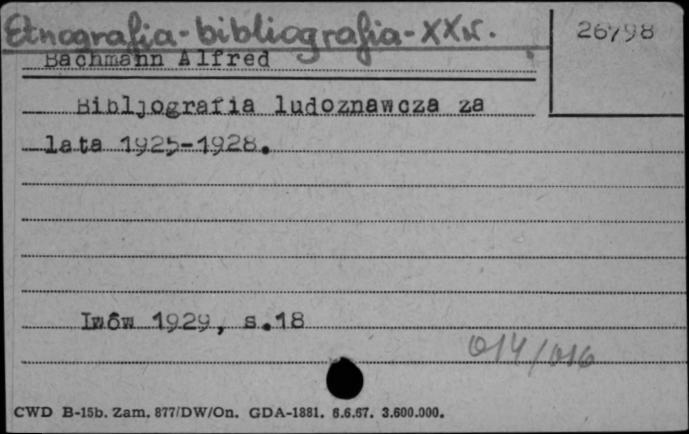 Etnografia-bibliografia-XXw.
26798
Bachmann Alfred
Bibljografia ludoznawcza za
lata 1925-1928.
Lwów 1929, s.18
014/016
CWD B-15b. Zam. 877/DW/On. GDA-1881. 6.6.67. 3.600.000.